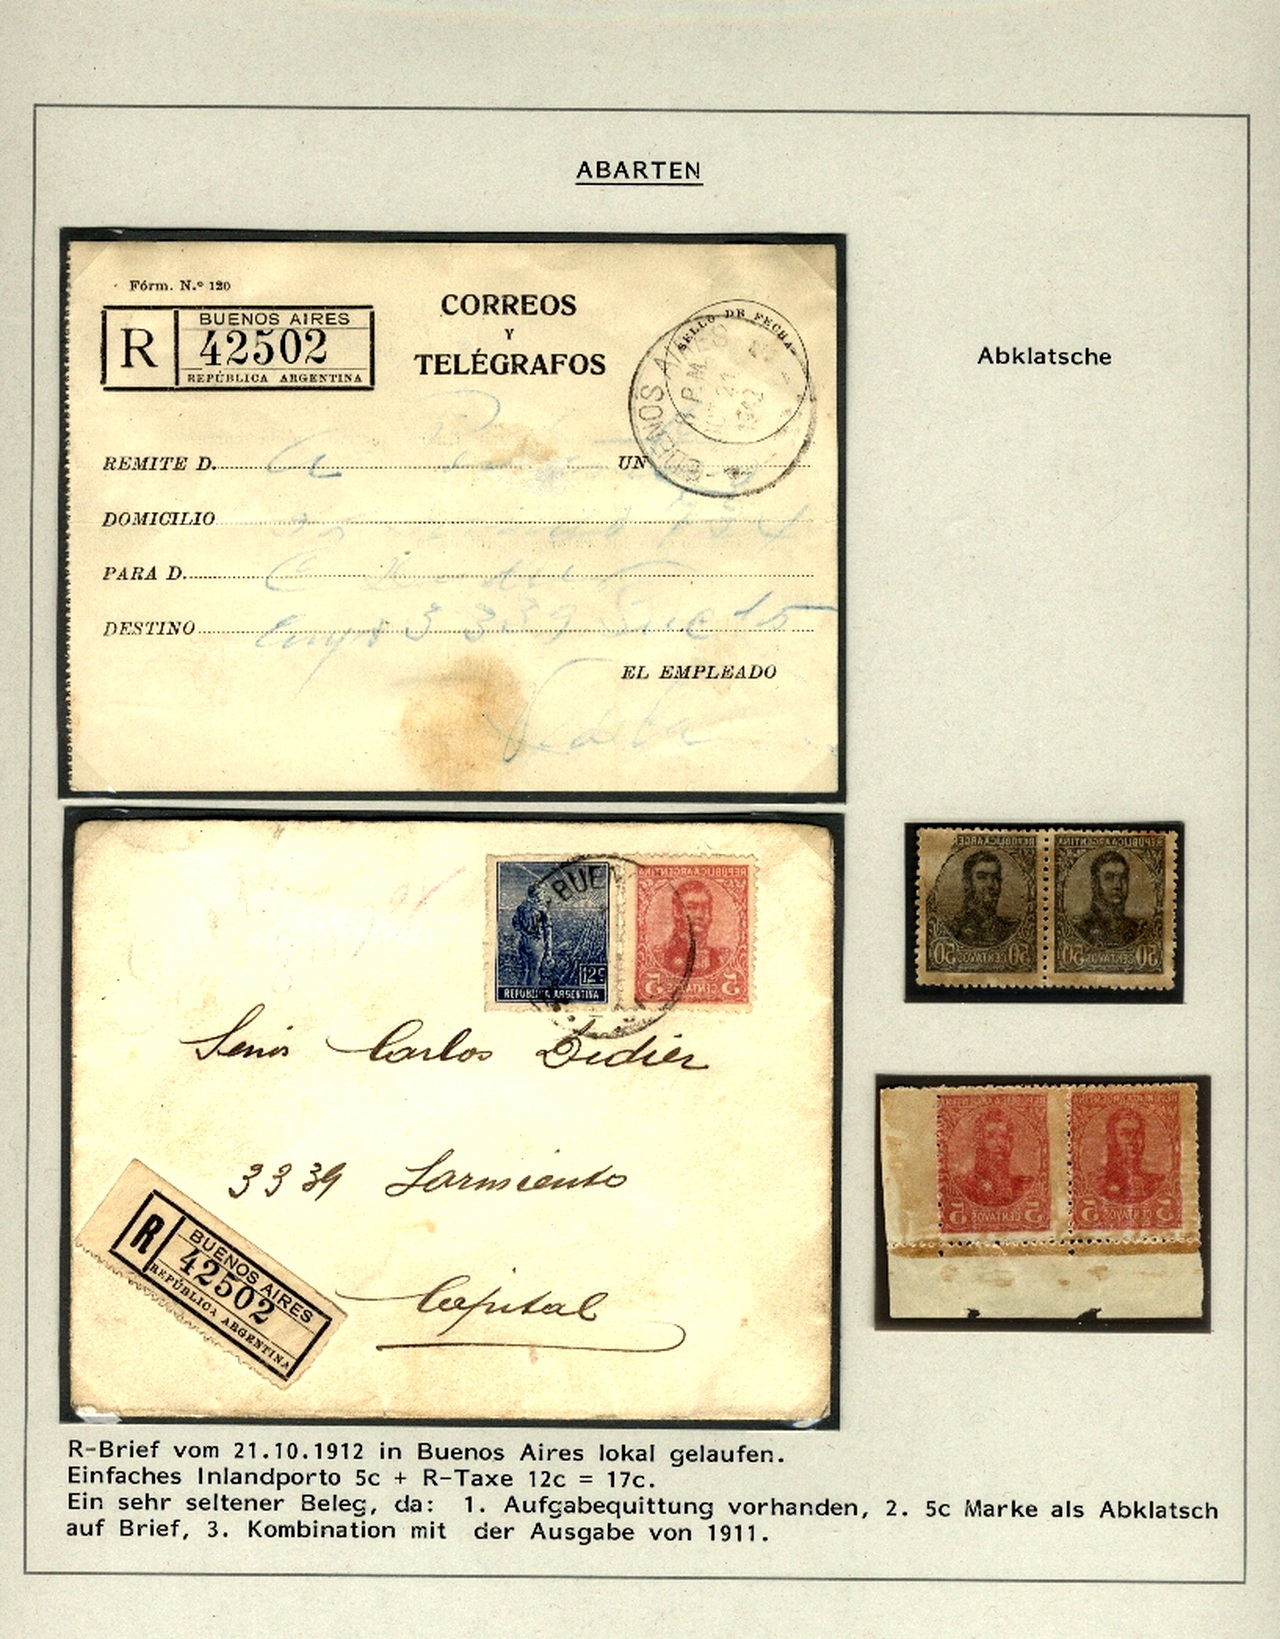 ABARTEN
Fórm. N.º 120
R BUENOS AIRES
42502
REPÚBLICA ARGENTINA
CORREOS
Y
TELÉGRAFOS
SELLO DE FECHA
BUENOS AIRES
REMITE D.
UN
DOMICILIO
PARA D.
DESTINO 3339 Suc 15
EL EMPLEADO
Abklatsche
BUEN
12c
REPÚBLICA ARGENTINA
REPÚBLICA ARGENTINA
5 CENTAVOS 5
Señor Carlos Didier
3339 Sarmiento
Capital
R BUENOS AIRES
42502
REPÚBLICA ARGENTINA
50 CENTAVOS 50
50 CENTAVOS 50
REPÚBLICA ARGENTINA
REPÚBLICA ARGENTINA
5 CENTAVOS 5
5 CENTAVOS 5
R-Brief vom 21.10.1912 in Buenos Aires lokal gelaufen.
Einfaches Inlandporto 5c + R-Taxe 12c = 17c.
Ein sehr seltener Beleg, da: 1. Aufgabequittung vorhanden, 2. 5c Marke als Abklatsch
auf Brief, 3. Kombination mit der Ausgabe von 1911.